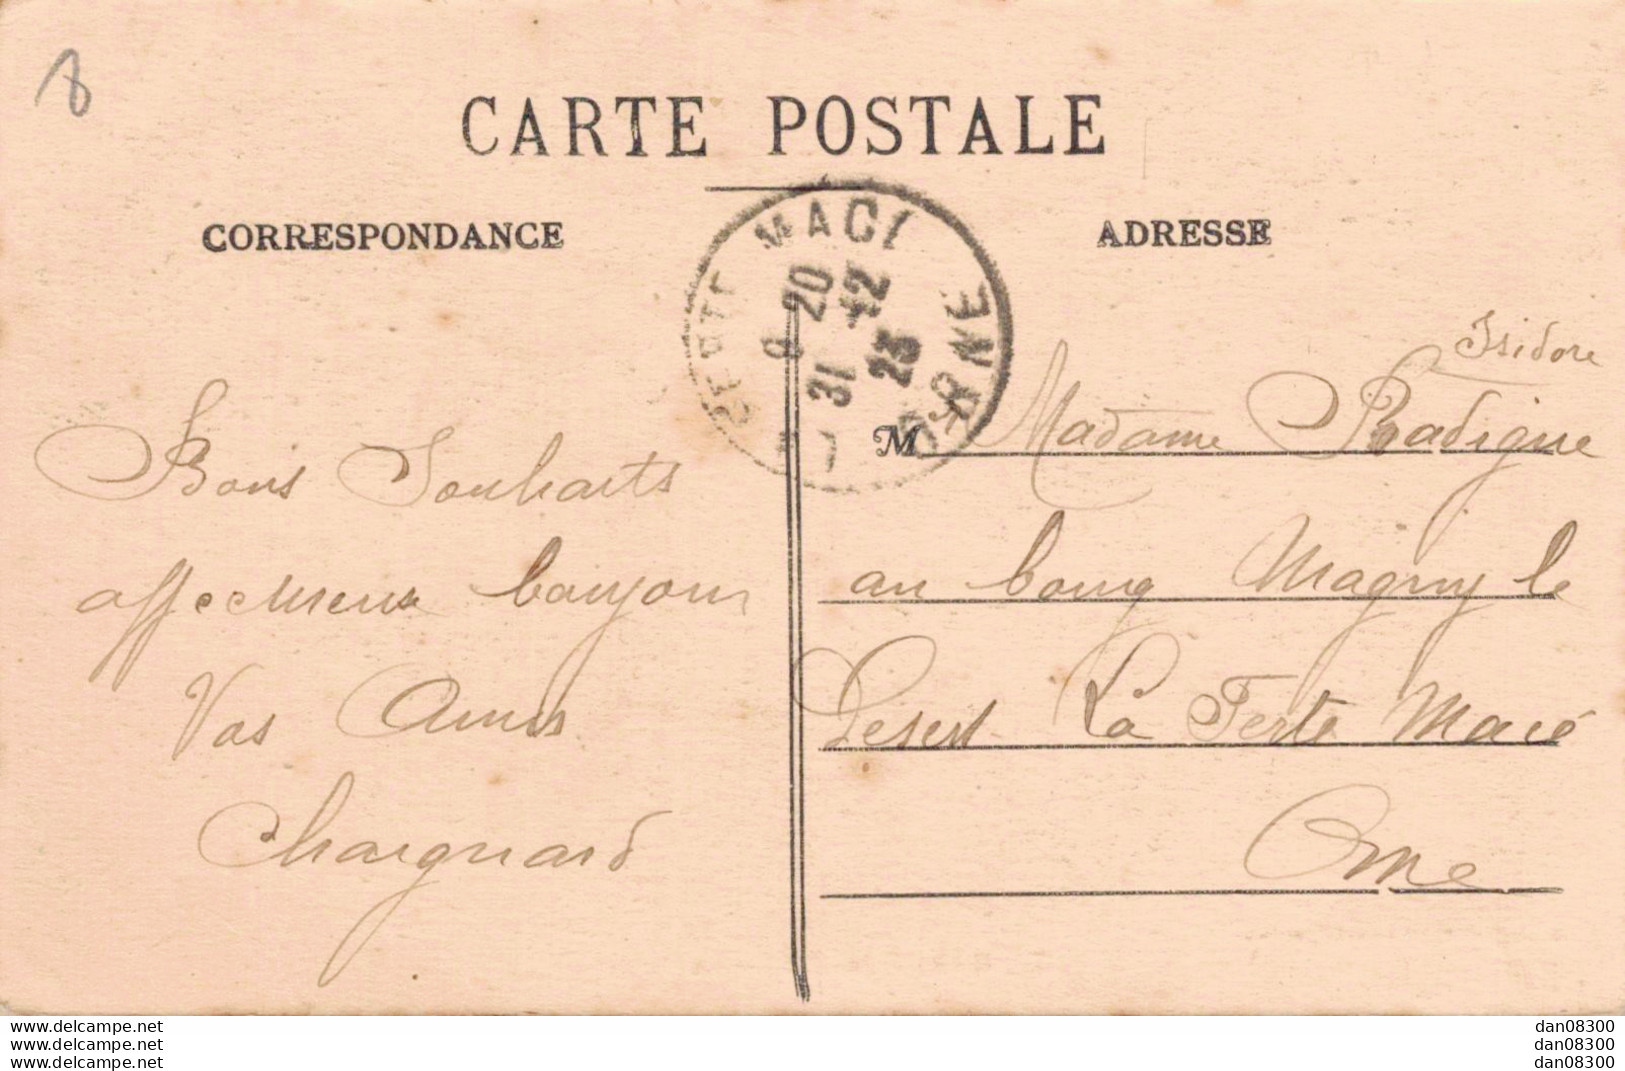 8
CARTE POSTALE
CORRESPONDANCE
ADRESSE
FERTE MACE
8 20
31 -12
23
ORNE
Isidore
M Madame Radigue
au bourg Magny le
Desert La Ferte Macé
Orne
Bons Souhaits
affectueux bonjour
Vos Amis
Chaignard
www.delcampe.net
www.delcampe.net
www.delcampe.net
dan08300
dan08300
dan08300